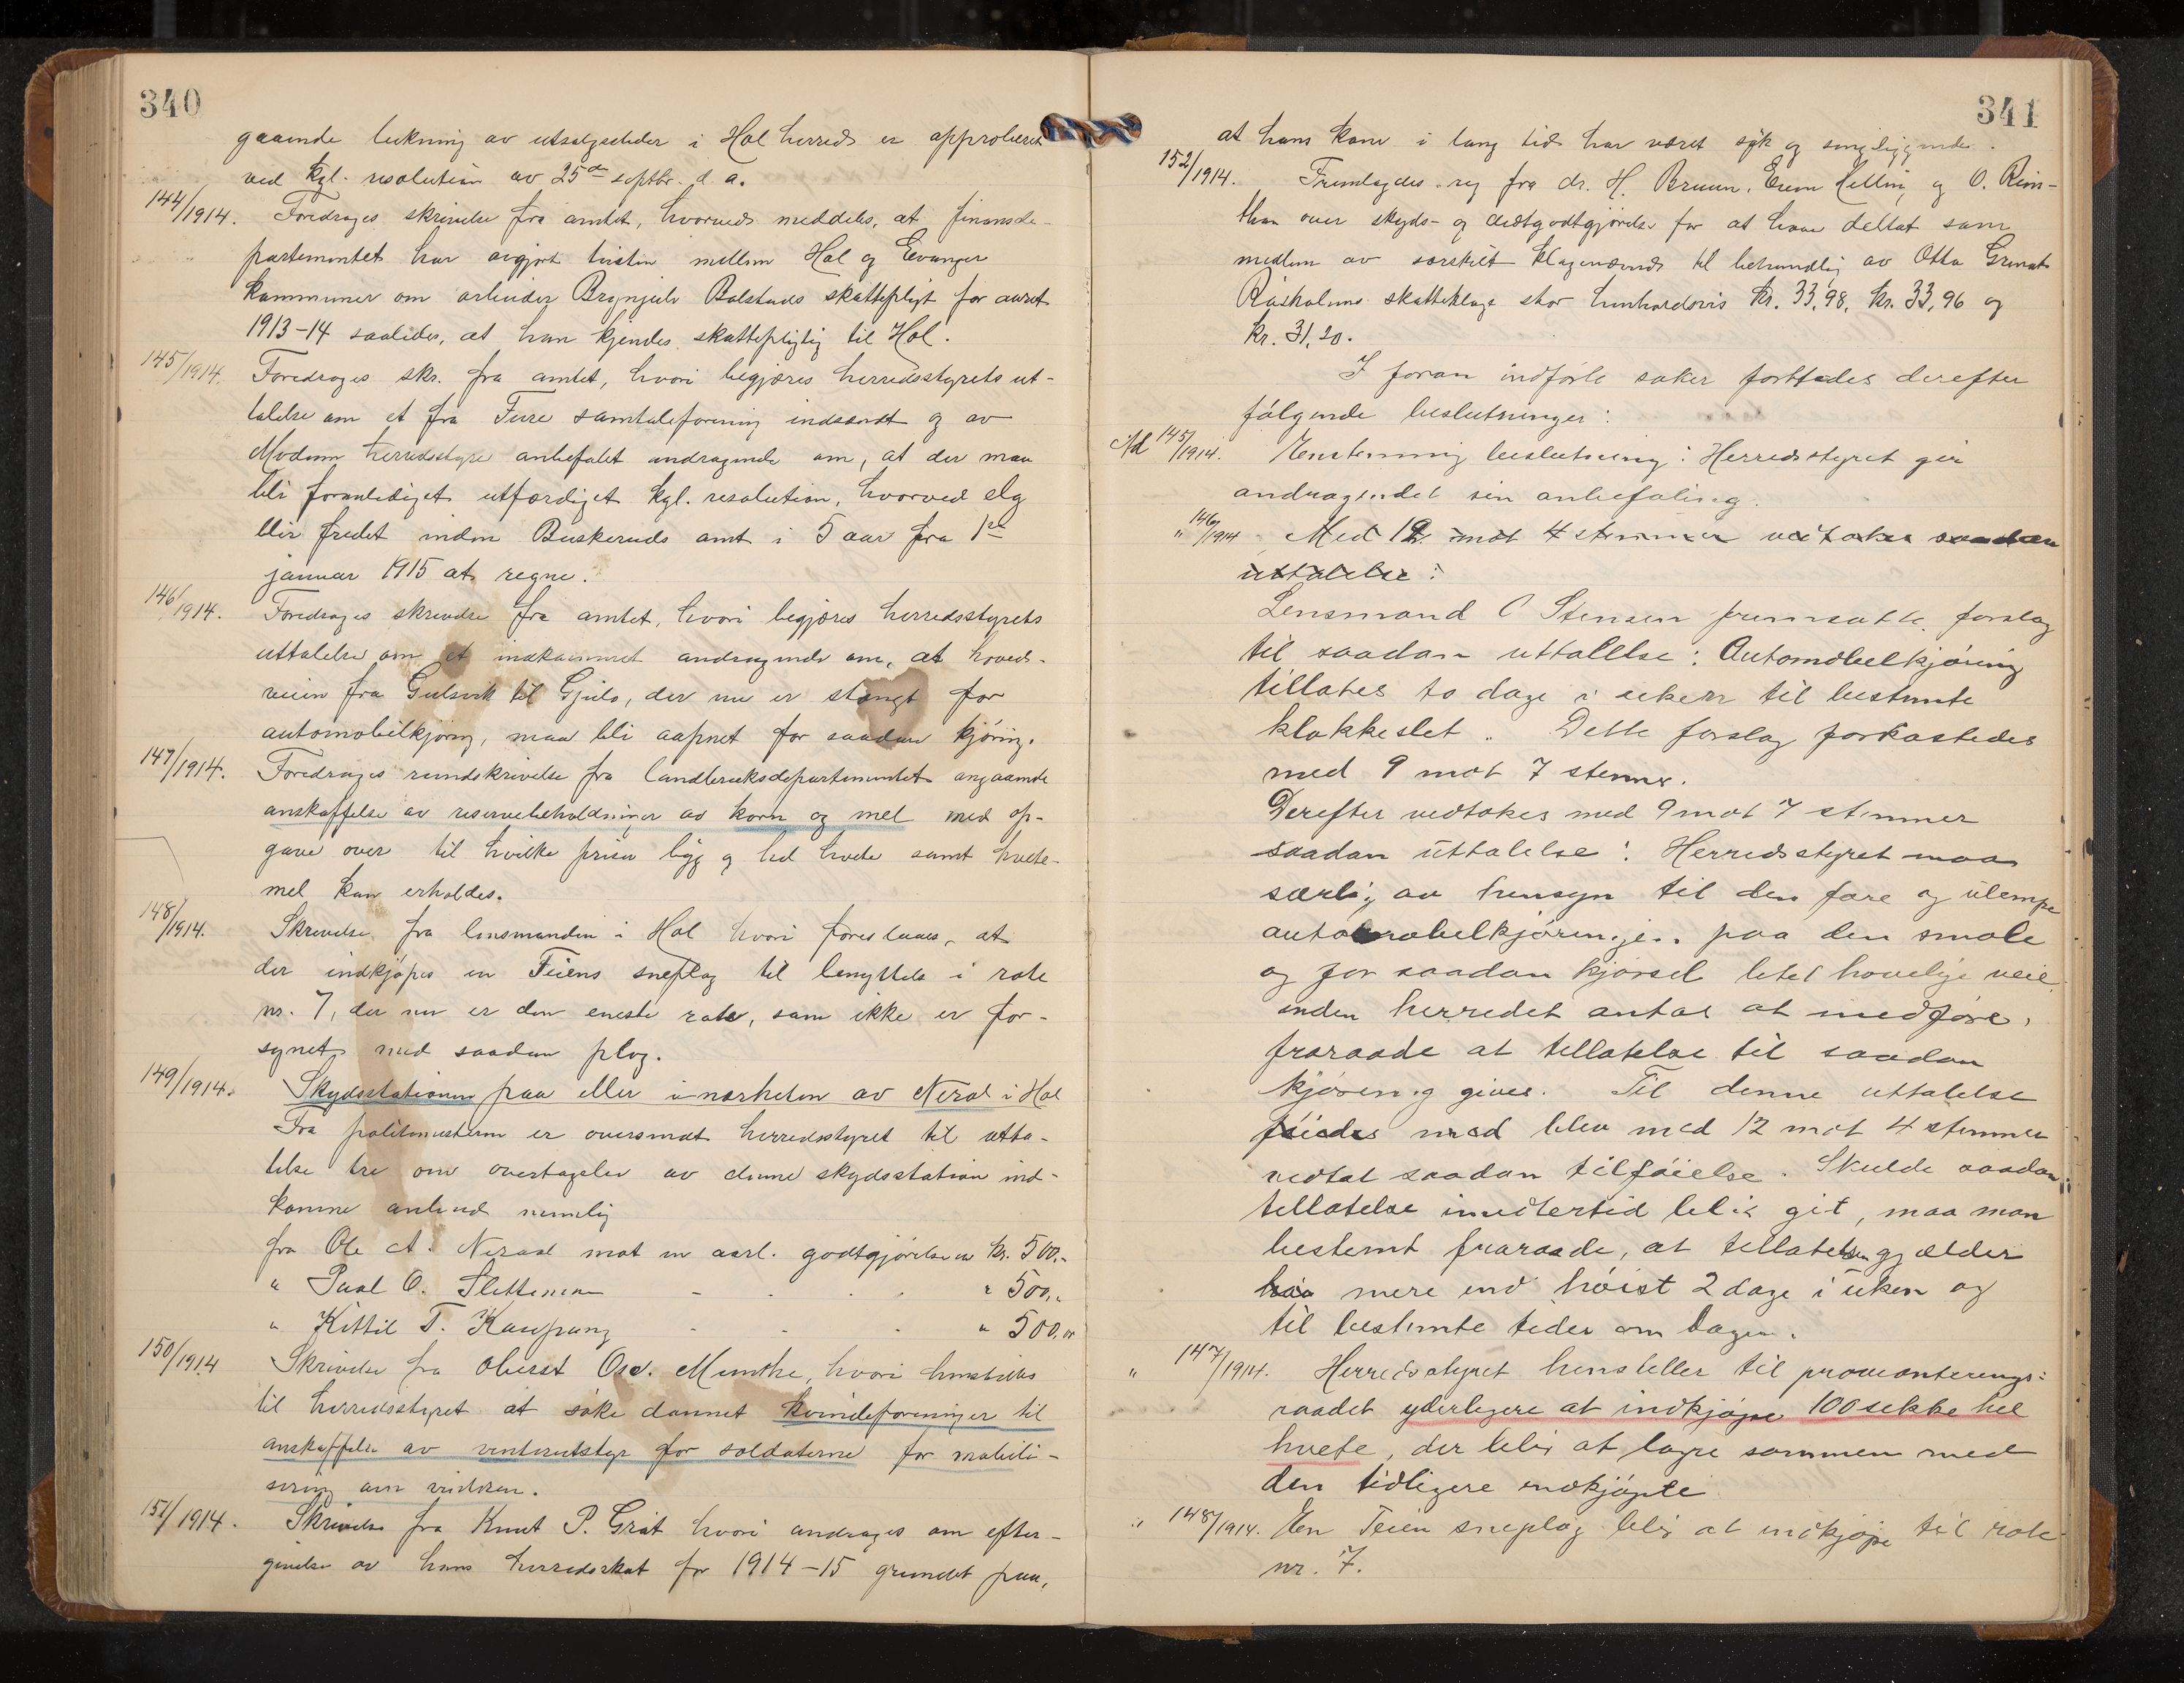 340
gaaende lukning av utsalgssteder i Hol herred er approberet
ved kgl. resolution av 25de septbr. d. a.
144/1914. Foredroges skrivelse fra amtet, hvorved meddeles, at finansde-
partementet har avgjort tvisten mellem Hol og Evanger
kommuner om arbeider Brynjulv Bolstads skattepligt for aaret
1913-14 saaledes, at han kjendes skattepligtig til Hol.
145/1914. Foredroges skr. fra amtet, hvori begjæres herredsstyrets ut-
talelse om et fra Fure samtaleforening indsendt og av
Modum herredsstyre anbefalet andragende om, at der maa
bli foranlediget utfærdiget kgl. resolution, hvorved elg
blir fredet inden Buskeruds amt i 5 aar fra 1ste
januar 1915 at regne.
146/1914. Foredroges skrivelse fra amtet, hvori begjæres herredsstyrets
uttalelse om et indkommet andragende om, at hoved-
veien fra Gulsvik til Gjeilo, der nu er stængt for
automobilkjøring, maa bli aapnet for saadan kjøring.
147/1914. Foredroges rundskrivelse fra landbruksdepartementet angaaende
anskaffelse av reservebeholdninger av korn og mel med op-
gave over til hvilke priser bygg og hel hvete samt hvete-
mel kan erholdes.
148/1914. Skrivelse fra lensmanden i Hol hvori foreslaaes, at
der indkjøpes en Feiens sneplog til benyttelse i rode
nr. 7, der nu er den eneste rode, som ikke er for-
synet med saadan plog.
149/1914. Skydsstationen paa eller i nærheten av Neral i Hol
Fra politimesteren er oversendt herredsstyret til utta-
lelse tre om overtagelse av denne skydsstation ind-
komne anbud nemlig
fra Ole A. Neraal mot en aarl. godtgjørelse av kr. 500.-
" Paal O. Slettemoen - . . " 500.-
" Kittil T. Kaupang - . . " 500.00
150/1914 Skrivelse fra oberst Osc. Munthe, hvori henstilles
til herredsstyret at søke dannet kvindeforeninger til
anskaffelse av vinterutstyr for soldaterne for mobili-
sering om vinteren.
151/1914. Skrivelse fra Knut P. Grøt hvori andrages om efter-
givelse av hans herredsskat for 1914-15 grundet paa,
341
at hans kone i lang tid har været syk og sengeliggende.
152/1914. Fremlagdes reg fra dr. H. Bruun, Even Helling og O. Rein-
ton over skyds- og diætgodtgjørelse for at have deltat som
medlem av særskilt klagenævnd til behandling av Otto
Råsholms skatteklage stor henholdsvis kr. 33,98, kr. 33,96 og
kr. 31,20.
I foran indførte saker fattedes derefter
følgende beslutninger:
Ad 145/1914. Enstemmig beslutning: Herredsstyret gir
andragendet sin anbefaling.
" 146/1914. Med 12 mot 4 stemmer vedtokes saadan
uttalelse:
Lensmand O Stensen fremsatte forslag
til saadan uttallse: Automobilkjøring
tillates to dage i uken til bestemte
klokkeslet. Dette forslag forkastedes
med 9 mot 7 stemmer.
Derefter vedtokes med 9 mot 7 stemmer
saadan uttalelse: Herredsstyret maa
særlig av hensyn til den fare og ulempe
automobilkjøringen paa den smale
og for saadan kjørsel litet høvelige veie
inden herredet antas at medføre,
fraraade at tillatelse til saadan
kjøring gives. Til denne uttalelse
føiedes med blev med 12 mot 4 stemmer
vedtat saadan tilføielse. Skulde saadan
tillatelse imidlertid bli git, maa man
bestemt fraraade, at tillatelsen gjælder
mere end høist 2 dage i uken og
til bestemte tider om dagen.
" 147/1914. Herredsstyret henstiller til provianterings-
raadet yderligere at indkjøpe 100 sekke hel
hvete, der blir at lagre sammen med
den tidligere indkjøpte
" 148/1914. En Feien sneplog blir at indkjøpe til rode
nr. 7.